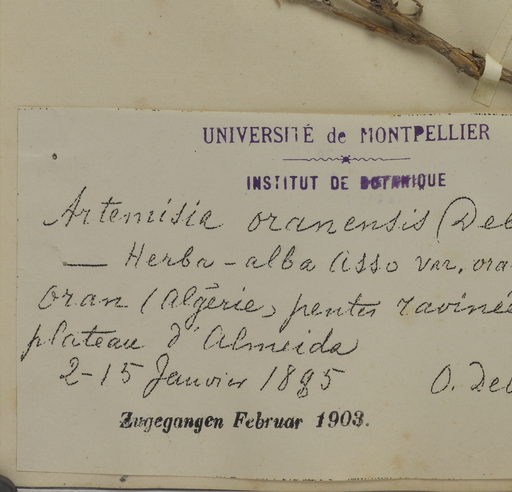 UNIVERSITÉ de MONTPELLIER
INSTITUT DE BOTANIQUE
Artemisia oranensis (Deb
— Herba-alba Asso var. ora
Oran (Algérie, pentes raviné
plateau d'Almeida
2-15 Janvier 1885 O. Deb
Zugegangen Februar 1903.